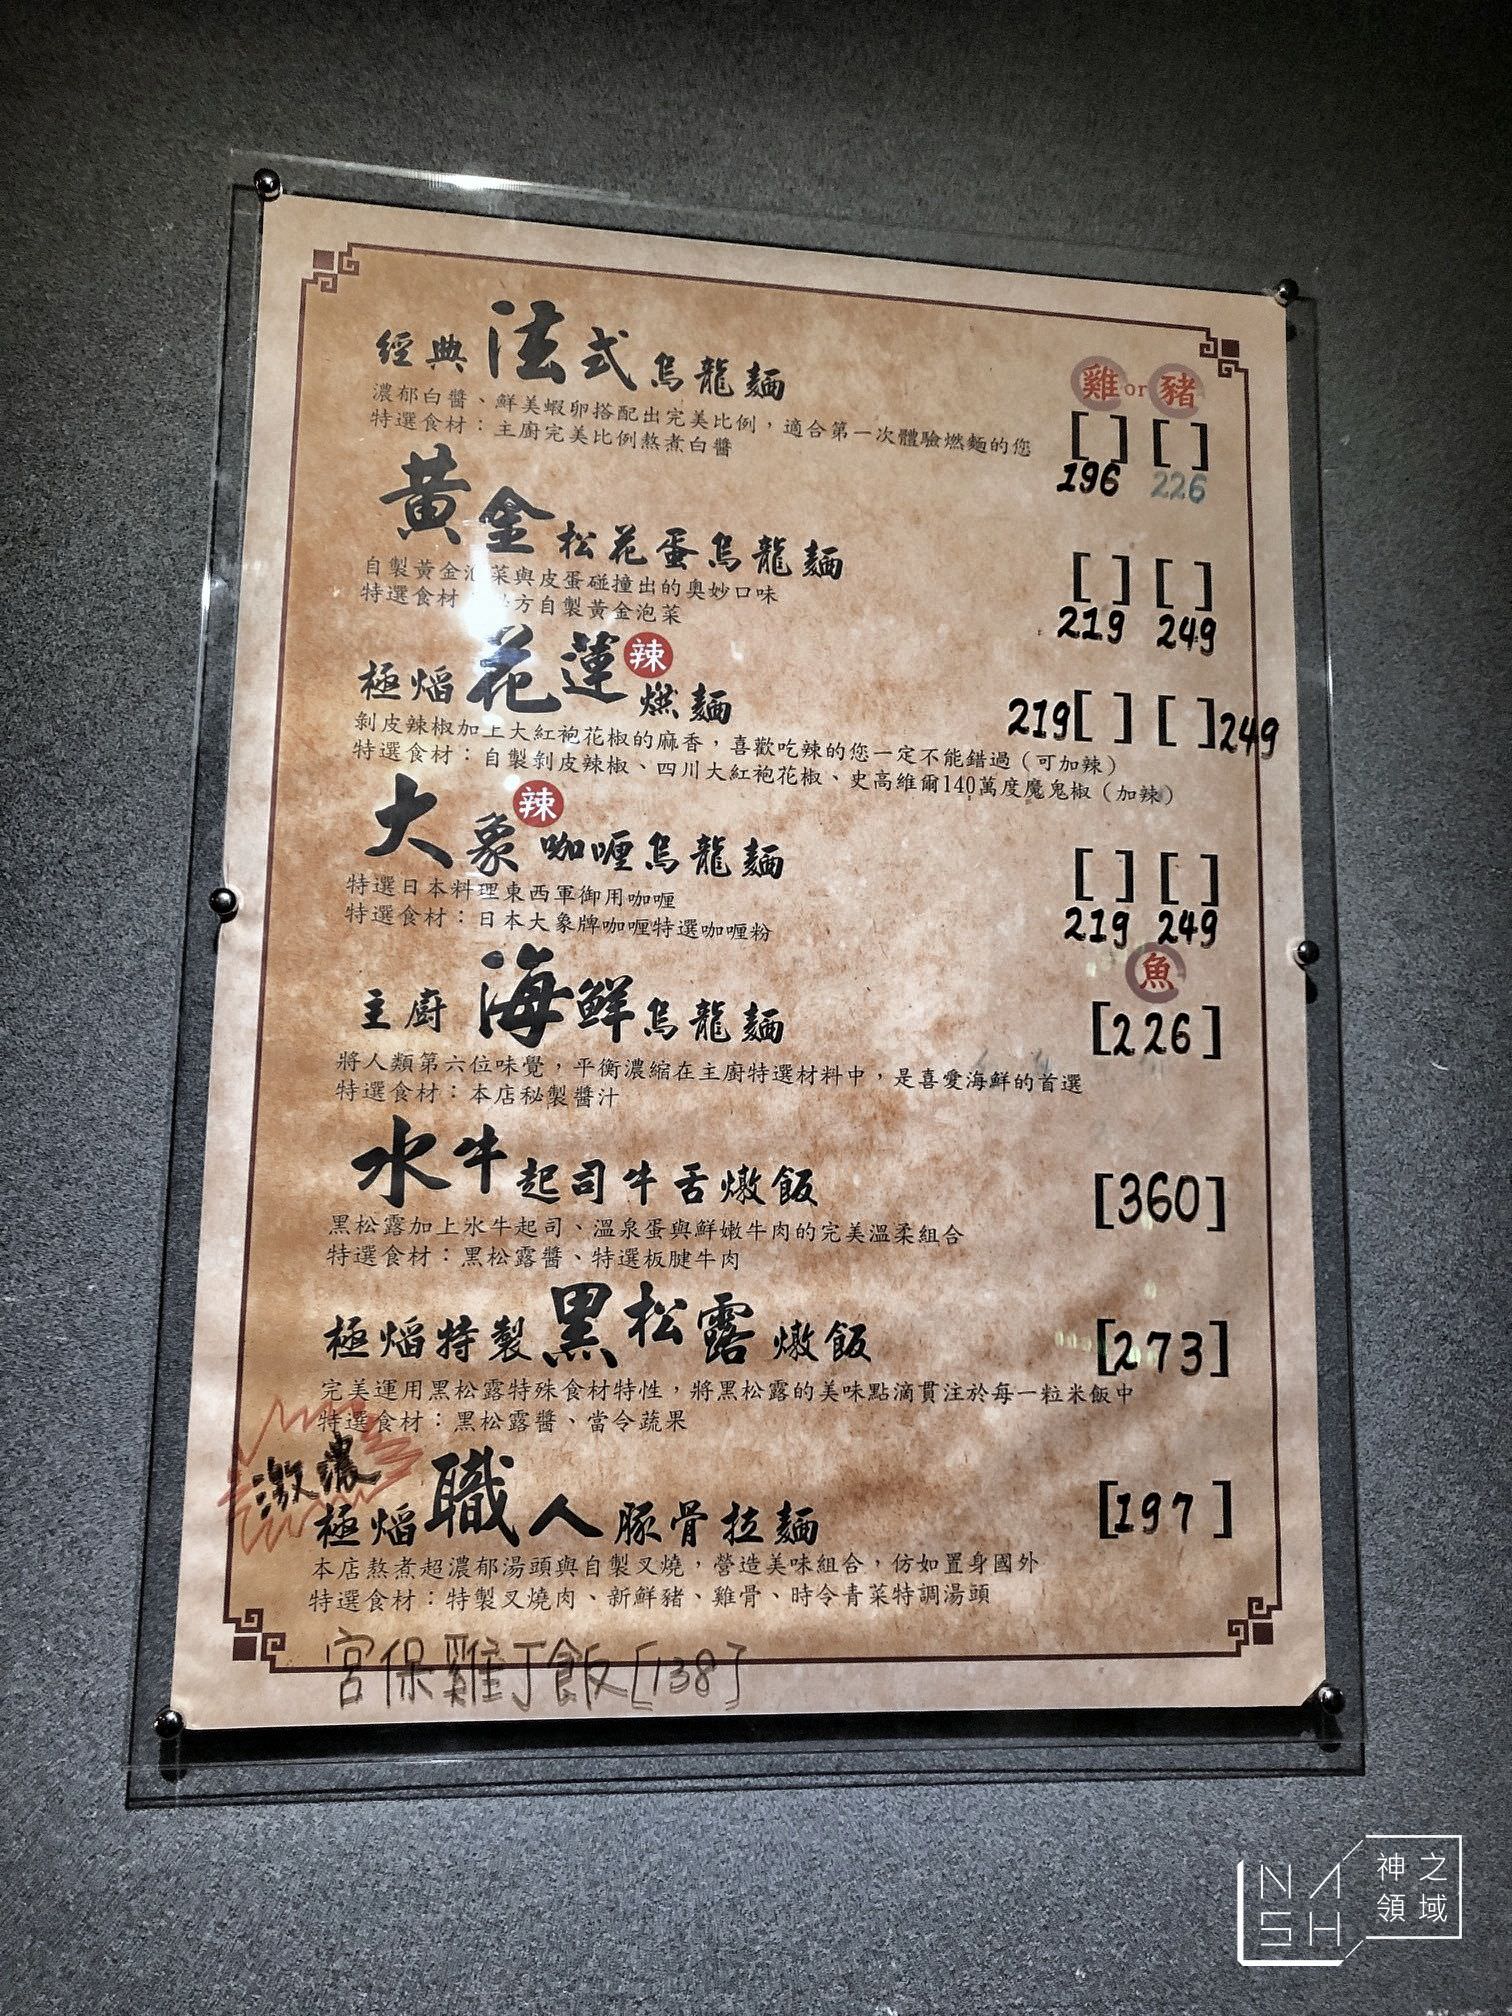 經典法式烏龍麵
雞or豬
濃郁白醬、鮮美蝦卵搭配出完美比例，適合第一次體驗燃麵的您
特選食材：主廚完美比例熬煮白醬
[ ] [ ]
196 226
黃金松花蛋烏龍麵
自製黃金泡菜與皮蛋碰撞出的奧妙口味
特選食材 方自製黃金泡菜
[ ] [ ]
219 249
極焰花蓮燃麵 辣
219[ ] [ ]249
剝皮辣椒加上大紅袍花椒的麻香，喜歡吃辣的您一定不能錯過（可加辣）
特選食材：自製剝皮辣椒、四川大紅袍花椒、史高維爾140萬度魔鬼椒（加辣）
大象咖喱烏龍麵 辣
特選日本料理東西軍御用咖喱
特選食材：日本大象牌咖喱特選咖喱粉
[ ] [ ]
219 249
魚
主廚海鮮烏龍麵
[226]
將人類第六位味覺，平衡濃縮在主廚特選材料中，是喜愛海鮮的首選
特選食材：本店秘製醬汁
水牛起司牛舌燉飯
[360]
黑松露加上水牛起司、溫泉蛋與鮮嫩牛肉的完美溫柔組合
特選食材：黑松露醬、特選板腱牛肉
極焰特製黑松露燉飯
[273]
完美運用黑松露特殊食材特性，將黑松露的美味點滴貫注於每一粒米飯中
特選食材：黑松露醬、當令蔬果
激濃
極焰職人豚骨拉麵
[197]
本店熬煮超濃郁湯頭與自製叉燒，營造美味組合，仿如置身國外
特選食材：特製叉燒肉、新鮮豬、雞骨、時令青菜特調湯頭
宮保雞丁飯[138]
NASH
神之領域